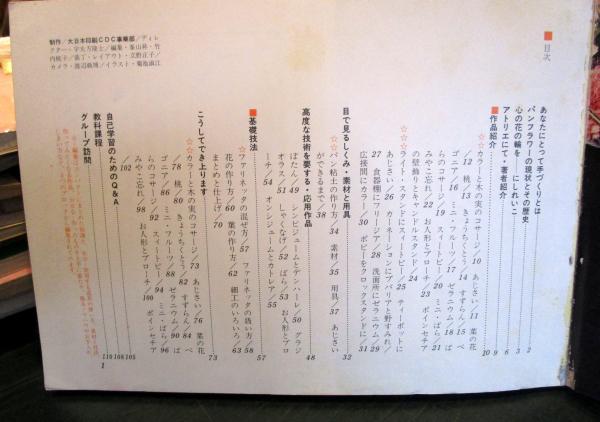 ■目次
あなたにとって手づくりとは 2
パンフラワーの現状とその歴史 3
心の花の輪を にしれいこ 6
アトリエにて・著者紹介 9
■作品紹介 10
☆カラーと木の実のコサージ/10 あじさい/11 菫の花
/12 桃/13 きょうちくとう/14 すずらん/15 ベ
ゴニア/16 ミニ・フルーツ/17 ゼラニウム/18 ば
らのコサージ/19 スイートピー/20 ミニ・ばら/21
みやこ忘れ/22 お人形とブローチ/23 ポインセチア
の壁飾りとキャンドルスタンド/24
☆ライト・スタンドにスイートピー/25 ティーポットに
あじさい/26 カーネーションにブバリアと野すみれ/
27 食器棚にフリージア/28 洗面所にゼラニウム/29
応接間にカラー/30 ポピーをクロックスタンドに/31
目で見るしくみ・素材と用具 32
☆パン粘土の作り方/34 素材/35 用具/37 あじさい
ができるまで/38
高度な技術を要する・応用作品 48
ぼたん/49 シンビジュームとデンハーレ/50 グラジ
オラス/51 しゃくなげ/52 ばら/53 お人形とブロ
ーチ/54 オンシジュームとカトレア/55
■基礎技法 57
☆ファリネッタの混ぜ方/57 ファリネッタの扱い方/58
花の作り方/60 葉の作り方/62 細工のいろいろ/63
まとめと仕上げ/70
こうしてでき上ります 73
☆カラーと木の実のコサージ/73 あじさい/76 菫の花
/78 桃/80 きょうちくとう/82 すずらん/84 ベ
ゴニア/86 ミニ・フルーツ/88 ゼラニウム/90 ば
らのコサージ/92 スイートピー/94 ミニ・ばら/96
みやこ忘れ/98 お人形とブローチ/100 ポインセチア
102
自己学習のためのQ&A 105
教科課程 108
グループ訪問 110
制作/大日本印刷CDC事業部/ディレ
クター・宇矢方隆士/編集・峯山昇・竹
内桃子/装丁・レイアウト・立野正子/
カメラ・渡辺義明/イラスト・菊池満江
1